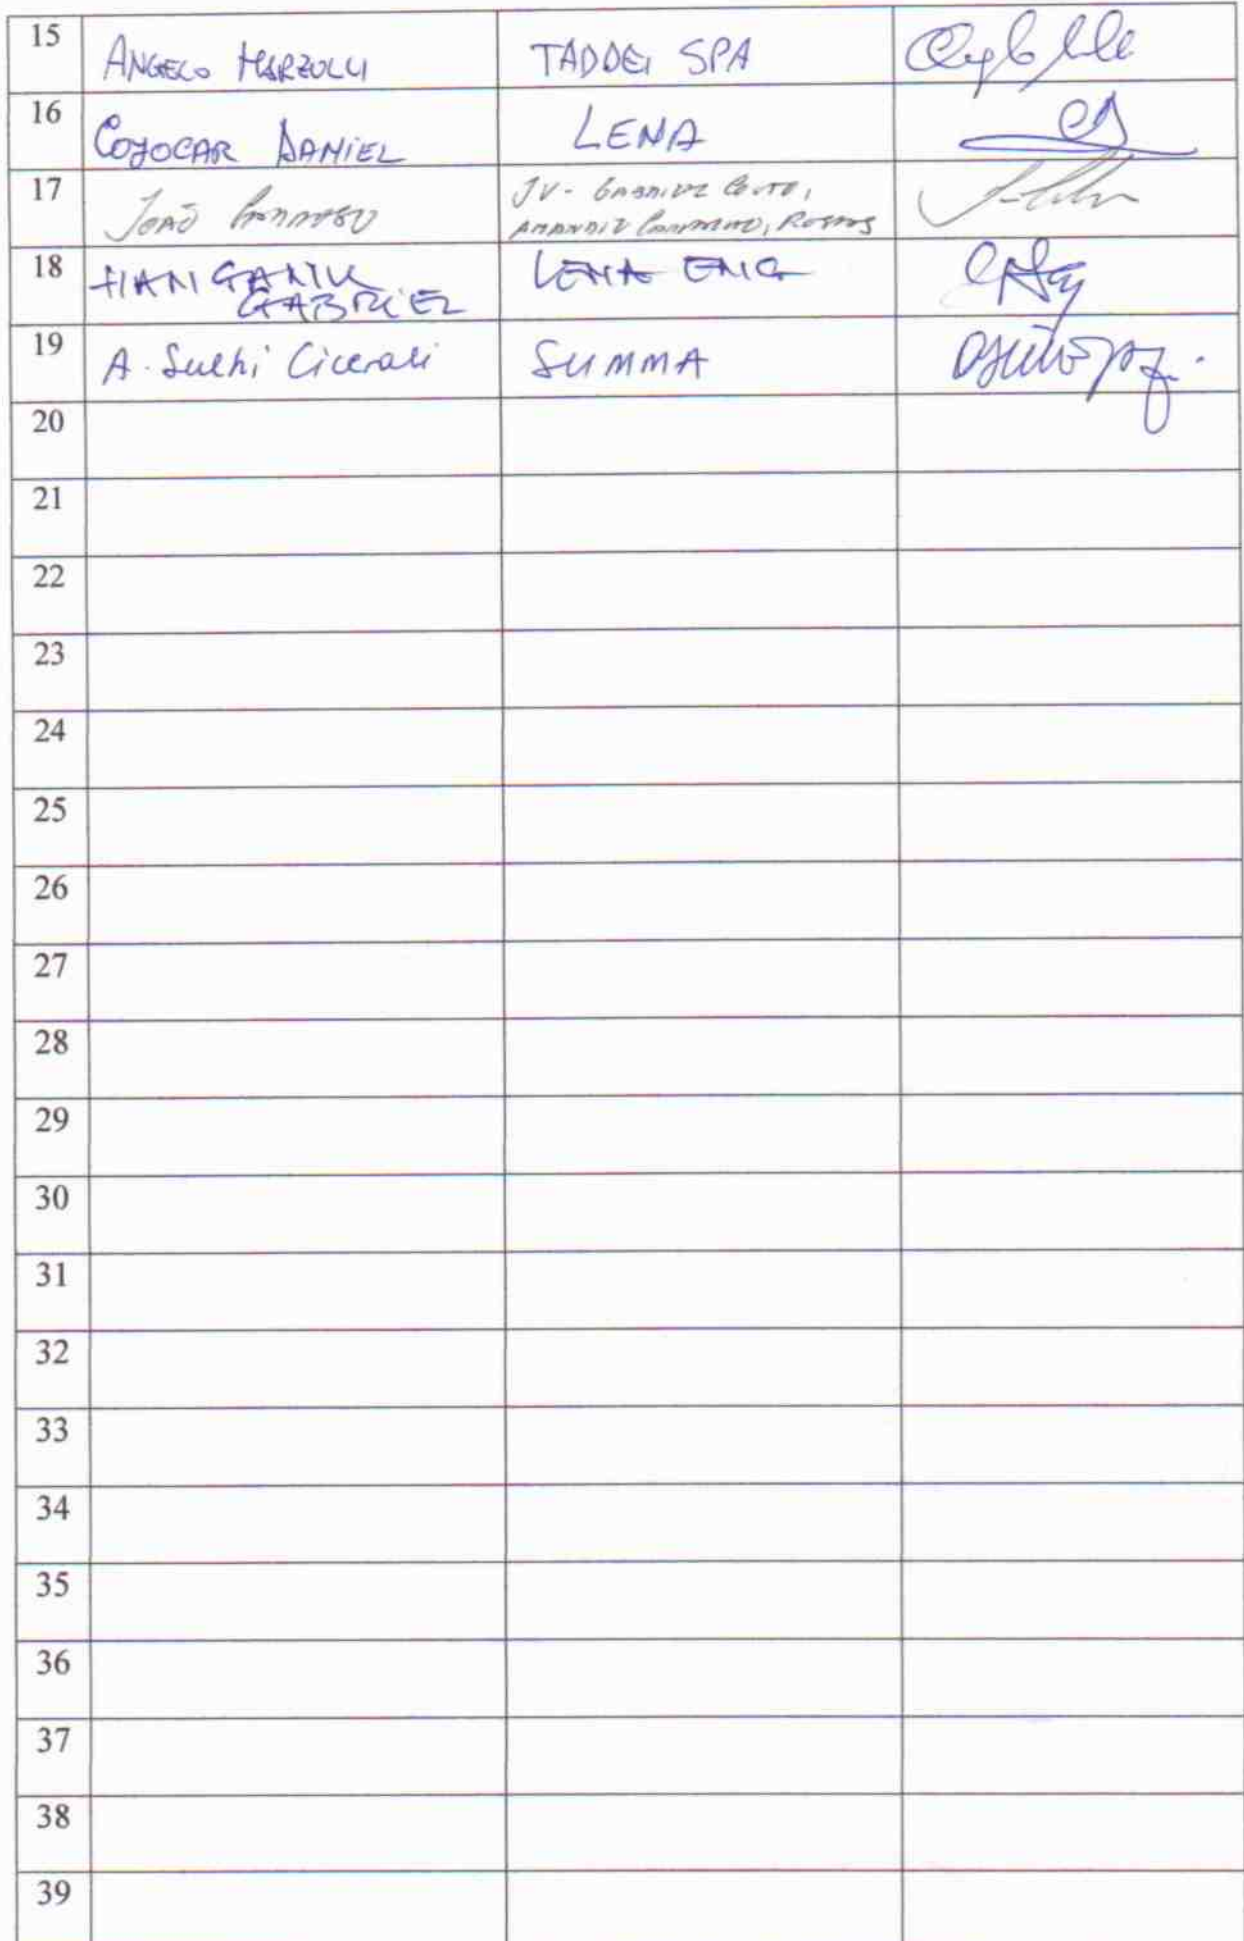 15 ANGELO MARZULLI TADDEI SPA
16 COJOCAR DANIEL LENA
17 JOAO JV - GABRIEL COUTO,
AMANDIO CARVALHO, ROSAS
18 LENA ENG
GABRIEL
19 A. Sulhi Cicerali SUMMA
20
21
22
23
24
25
26
27
28
29
30
31
32
33
34
35
36
37
38
39